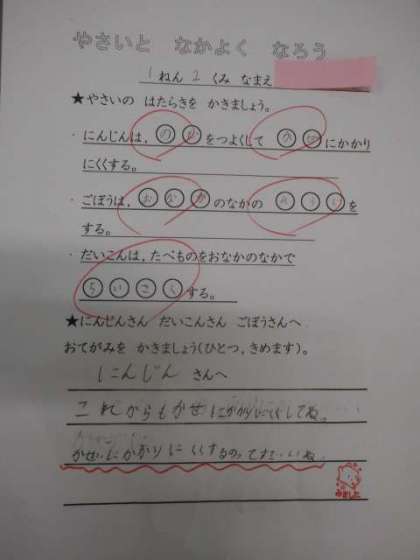 やさいと なかよく なろう
1ねん 2くみ なまえ
★やさいの はたらきを かきましょう。
・にんじんは，のどをつよくして かぜにかかり
にくくする。
・ごぼうは，おなかのなかの そうじを
する。
・だいこんは，たべものをおなかのなかで
らいこくする。
★にんじんさん だいこんさん ごぼうさんへ
おてがみを かきましょう(ひとつ，きめます)。
にんじん さんへ
これからもかぜにかかりにくくしてね。
かぜにかかりにくくするのってすごいね
みました